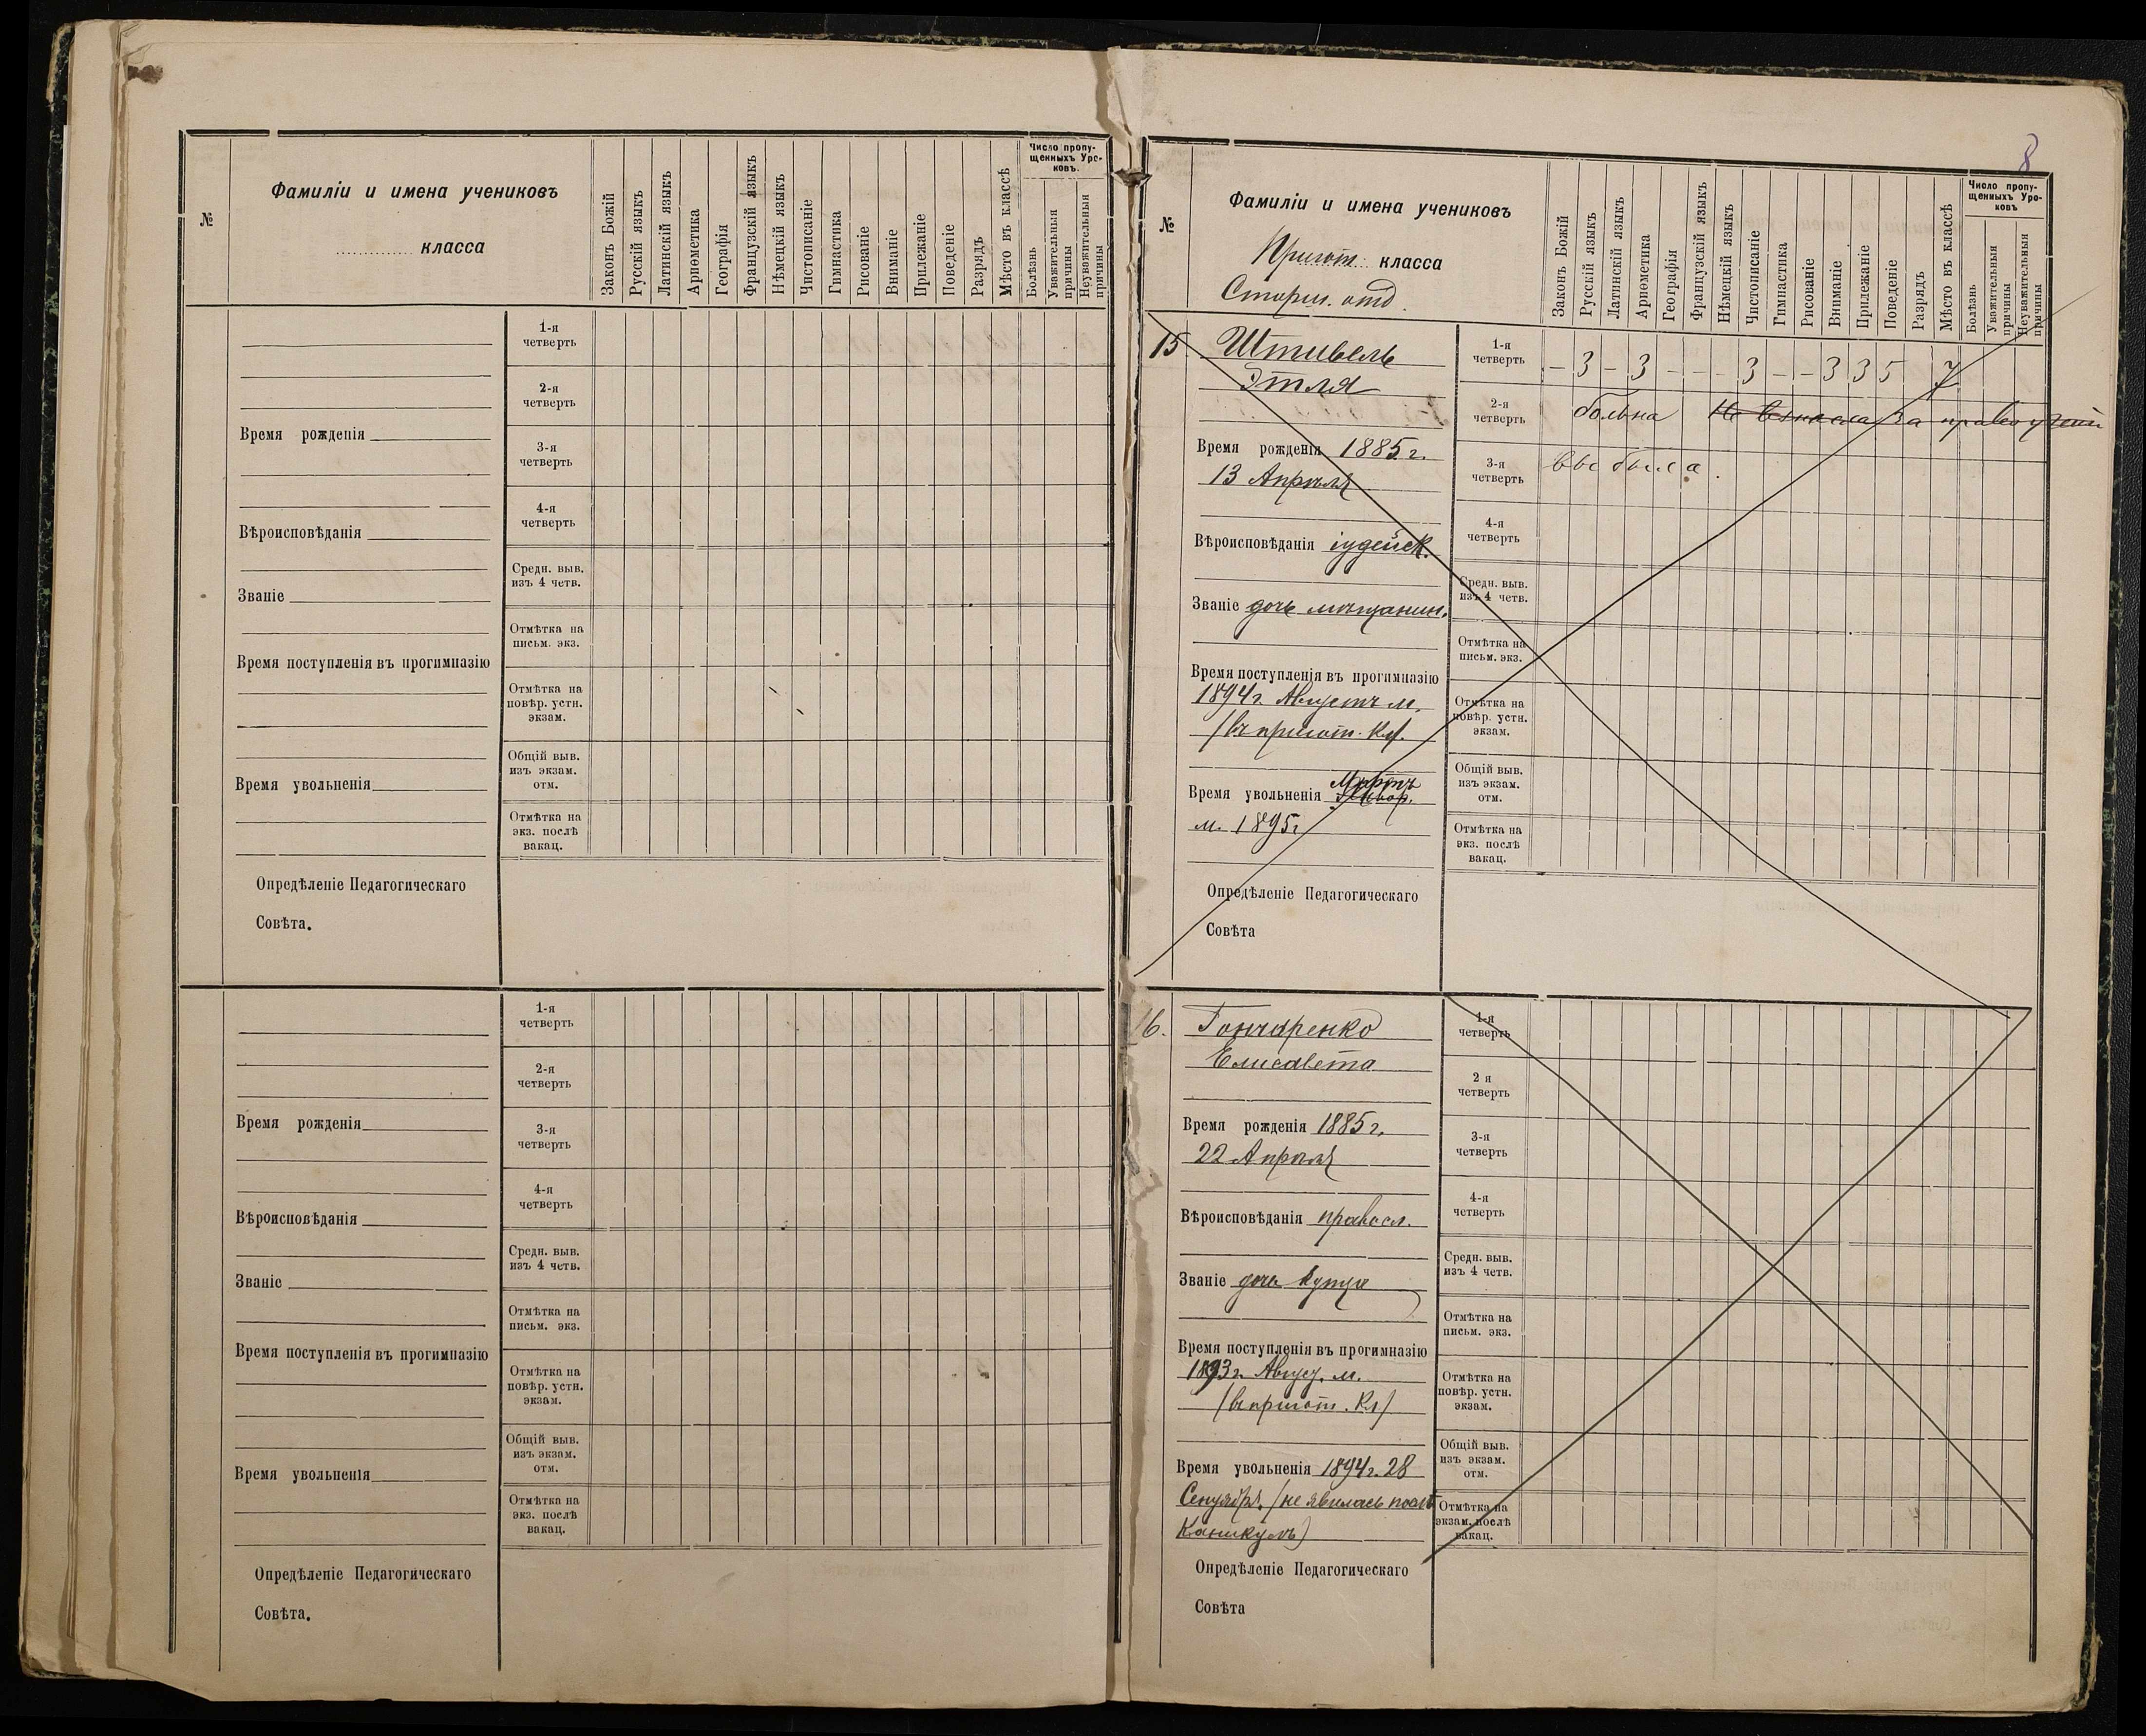 №
Фамиліи и имена учениковъ
класса
Законъ Божій
Русскій языкъ
Латинскій языкъ
Ариѳметика
Географія
Французскій языкъ
Нѣмецкій языкъ
Чистописаніе
Гимнастика
Рисованіе
Вниманіе
Прилежаніе
Поведеніе
Разрядъ
Мѣсто въ классѣ
Число пропу-
щенныхъ Уро-
ковъ.
Болѣзнь
Уважительныя
причины
Неуважительныя
причины
1-я
четверть
2-я
четверть
Время рожденія
3-я
четверть
4-я
четверть
Вѣроисповѣданія
Средн. выв.
изъ 4 четв.
Званіе
Отмѣтка на
письм. экз.
Время поступленія въ прогимназію
Отмѣтка на
повѣр. устн.
экзам.
Общій выв.
изъ экзам.
отм.
Время увольненія
Отмѣтка на
экз. послѣ
вакац.
Опредѣленіе Педагогическаго
Совѣта.
1-я
четверть
2-я
четверть
Время рожденія
3-я
четверть
4-я
четверть
Вѣроисповѣданія
Средн. выв.
изъ 4 четв.
Званіе
Отмѣтка на
письм. экз.
Время поступленія въ прогимназію
Отмѣтка на
повѣр. устн.
экзам.
Общій выв.
изъ экзам.
отм.
Время увольненія
Отмѣтка на
экз. послѣ
вакац.
Опредѣленіе Педагогическаго
Совѣта.
8
№
Фамиліи и имена учениковъ
Пригот. класса
Старш. отд.
Законъ Божій
Русскій языкъ
Латинскій языкъ
Ариѳметика
Географія
Французскій языкъ
Нѣмецкій языкъ
Чистописаніе
Гимнастика
Рисованіе
Вниманіе
Прилежаніе
Поведеніе
Разрядъ
Мѣсто въ классѣ
Число пропу-
щенныхъ Уро-
ковъ
Болѣзнь
Уважительныя
причины
Неуважительныя
причины
15 Штивель
Этля
1-я
четверть
– 3 – 3 – – – 3 – – 3 3 5 7
2-я
четверть
больна Не внесла за право учені
Время рожденія 1885 г.
13 Апрѣля
3-я
четверть
выбыла.
4-я
четверть
Вѣроисповѣданія іудейск.
Средн. выв.
изъ 4 четв.
Званіе дочь мѣщанин.
Отмѣтка на
письм. экз.
Время поступленія въ прогимназію
1894 г. Августъ м.
(въ пригот. кл.
Отмѣтка на
повѣр. устн.
экзам.
Общій выв.
изъ экзам.
отм.
Время увольненія Мартъ
м. 1895 г
Отмѣтка на
экз. послѣ
вакац.
Опредѣленіе Педагогическаго
Совѣта
16. Гончаренко
Елисавета
1-я
четверть
2 я
четверть
Время рожденія 1885 г.
22 Апрѣля
3-я
четверть
4-я
четверть
Вѣроисповѣданія правосл.
Средн. выв.
изъ 4 четв.
Званіе дочь купца
Отмѣтка на
письм. экз.
Время поступленія въ прогимназію
1893 г. Авгус. м.
(въ пригот. кл)
Отмѣтка на
повѣр. устн.
экзам.
Общій выв.
изъ экзам.
отм.
Время увольненія 1894 г. 28
Сентября. (не явилась послѣ
каникулъ)
Отмѣтка на
экзам. послѣ
вакац.
Опредѣленіе Педагогическаго
Совѣта